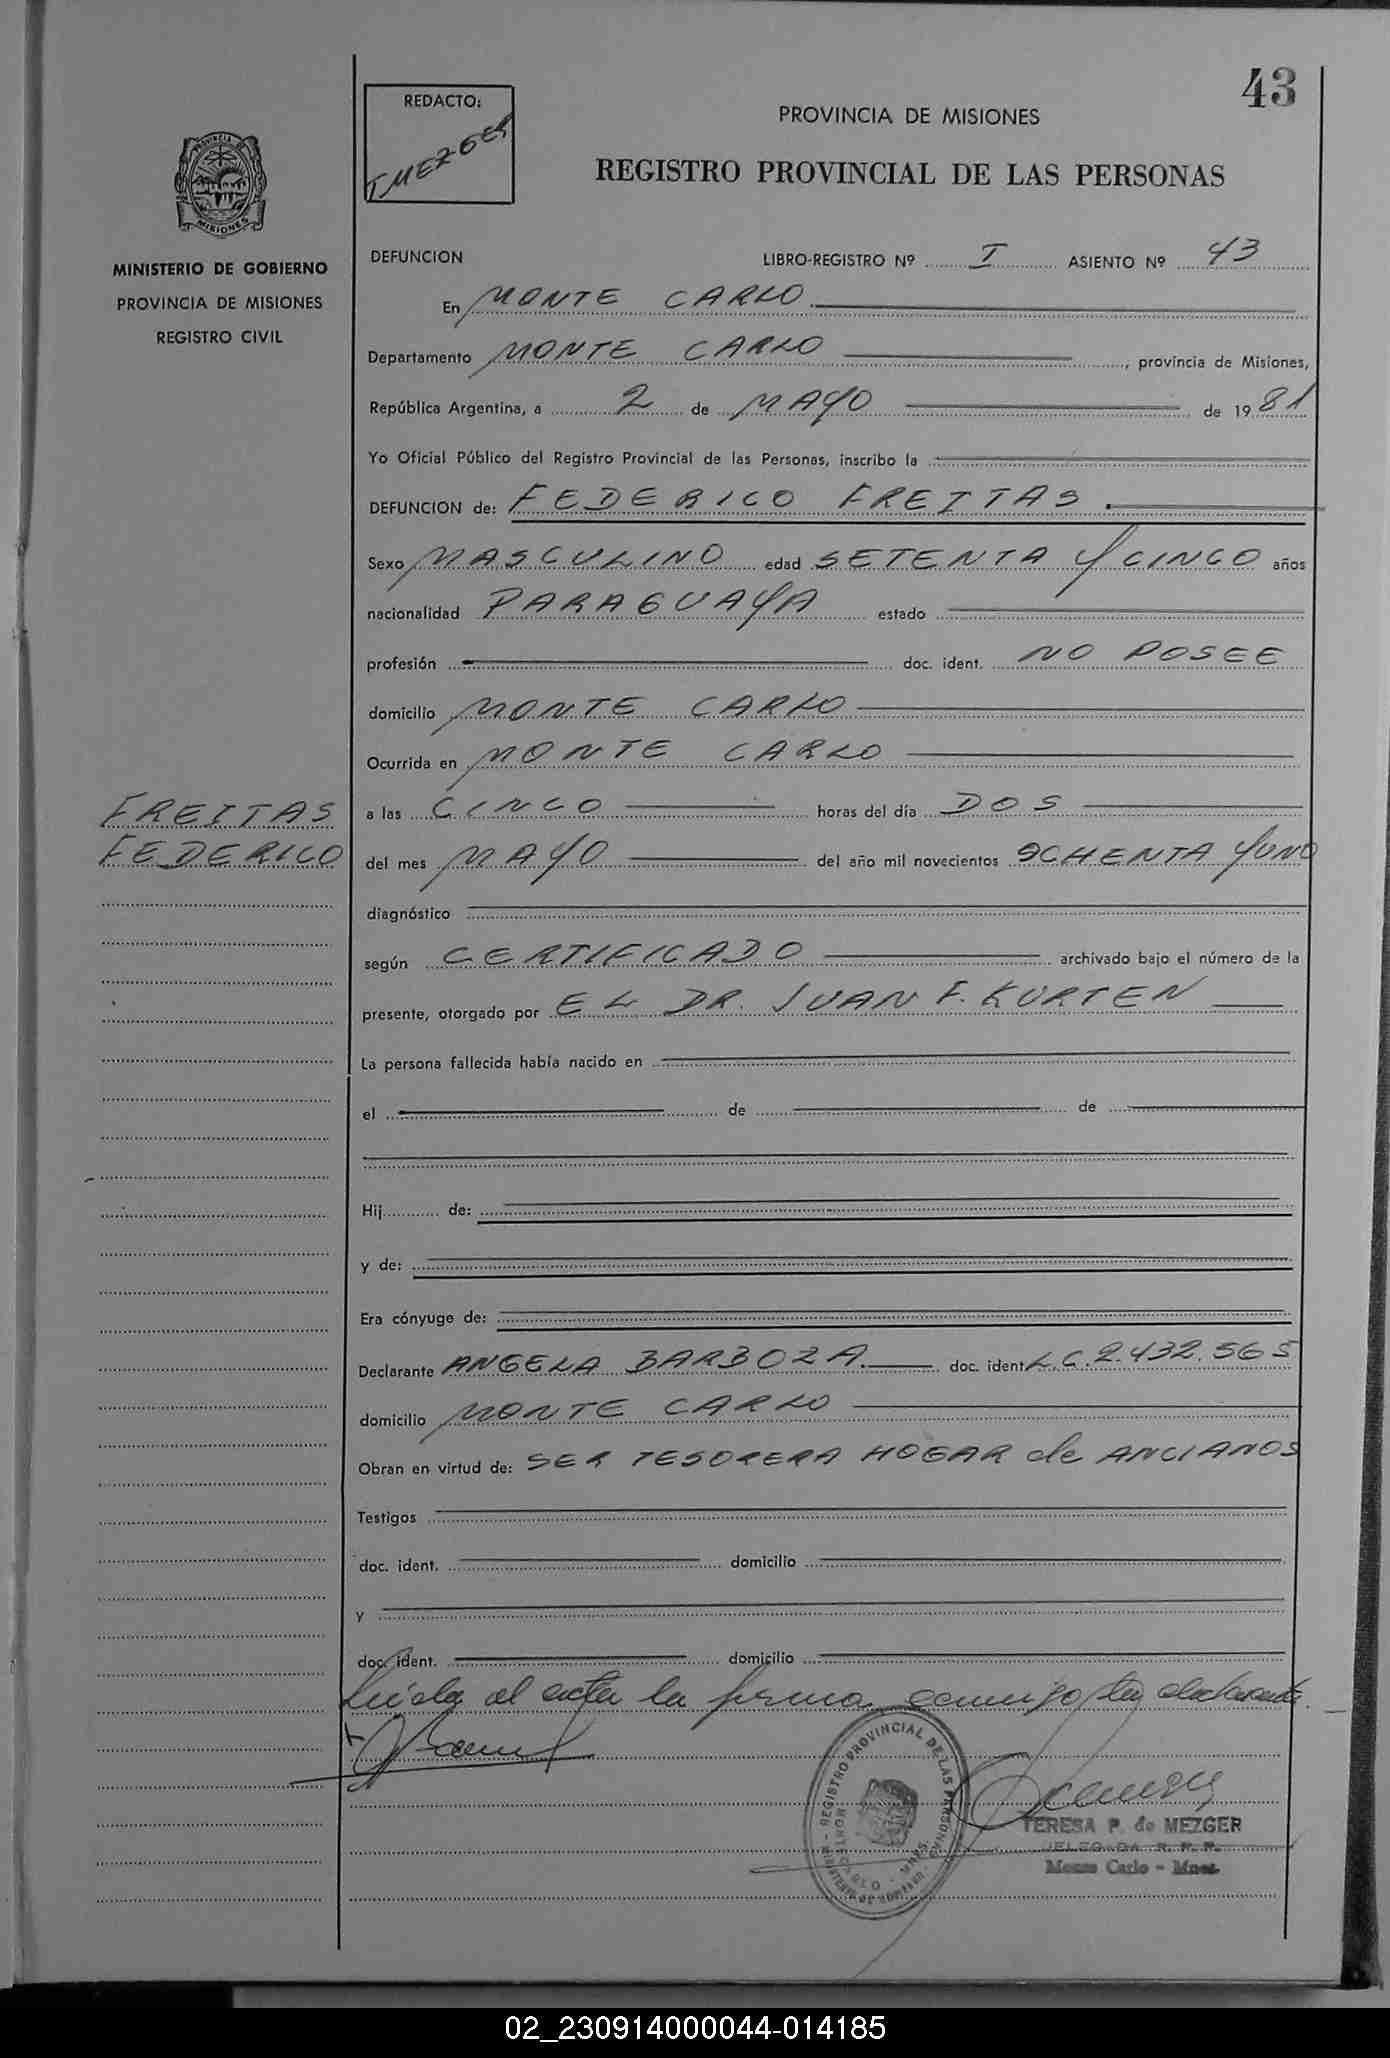 43
REDACTO:
T MEZGER
PROVINCIA DE MISIONES
REGISTRO PROVINCIAL DE LAS PERSONAS
PROVINCIA DE
MISIONES
MINISTERIO DE GOBIERNO
PROVINCIA DE MISIONES
REGISTRO CIVIL
DEFUNCION LIBRO-REGISTRO Nº I ASIENTO Nº 43
En MONTE CARLO
Departamento MONTE CARLO, provincia de Misiones,
República Argentina, a 2 de MAYO de 1981
Yo Oficial Público del Registro Provincial de las Personas, inscribo la
DEFUNCION de: FEDERICO FREITAS.
Sexo MASCULINO edad SETENTA Y CINCO años
nacionalidad PARAGUAYA estado
profesión doc. ident. NO POSEE
domicilio MONTE CARLO
Ocurrida en MONTE CARLO
FREITAS
FEDERICO
a las CINCO horas del día DOS
del mes MAYO del año mil novecientos OCHENTA Y UNO
diagnóstico
según CERTIFICADO archivado bajo el número de la
presente, otorgado por EL DR. JUAN F. KURTEN
La persona fallecida había nacido en
el de de
Hij de:
y de:
Era cónyuge de:
Declarante ANGELA BARBOZA. doc. ident. L.C. 2.432.565
domicilio MONTE CARLO
Obran en virtud de: SER TESORERA HOGAR de ANCIANOS
Testigos
doc. ident. domicilio
y
doc. ident. domicilio
Leída el acta la firma conmigo la declarante.
REGISTRO PROVINCIAL DE LAS PERSONAS
MONTE CARLO - MNES.
TERESA P. de MEZGER
DELEGADA R. P. P.
Monte Carlo - Mnes.
02_230914000044-014185